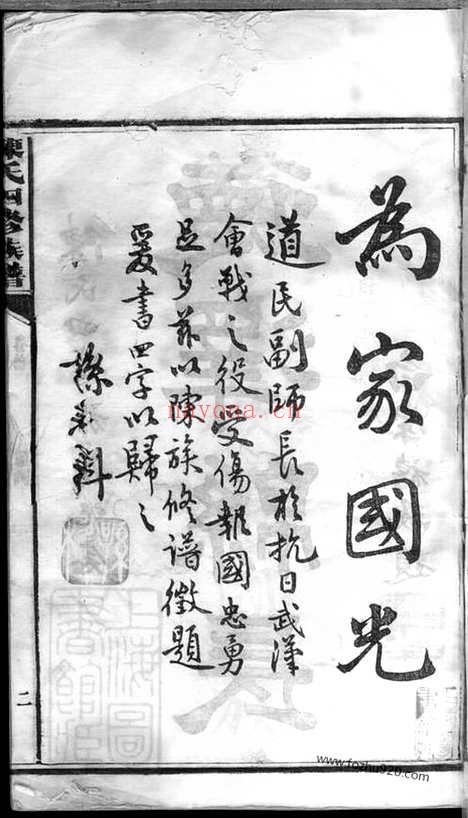 為家國光
道民副師長於抗日武漢
會戰之役受傷報國忠勇
足多茲以陳族修譜徵題
爰書四字以歸之
陳氏四修族譜
二
上海圖書館藏
nayona.cn
www.fozhu920.com